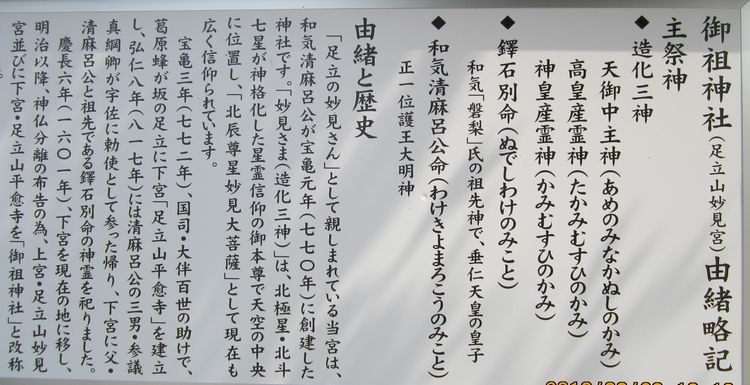 御祖神社(足立山妙見宮)由緒略記
主祭神
◆ 造化三神
天御中主神(あめのみなかぬしのかみ)
高皇産霊神(たかみむすひのかみ)
神皇産霊神(かみむすひのかみ)
◆ 鐸石別命(ぬでしわけのみこと)
和気「磐梨」氏の祖先神で、垂仁天皇の皇子
◆ 和気清麻呂公命(わけきよまろこうのみこと)
正一位護王大明神
由緒と歴史
「足立の妙見さん」として親しまれている当宮は、
和気清麻呂公が宝亀元年(七七〇年)に創建した
神社です。「妙見さま(造化三神)」は、北極星・北斗
七星が神格化した星霊信仰の御本尊で天空の中央
に位置し、「北辰尊星妙見大菩薩」として現在も
広く信仰られています。
宝亀三年(七七二年)、国司・大伴百世の助けで、
葛原蜂が坂の足立に下宮「足立山平愈寺」を建立
し、弘仁八年(八一七年)には清麻呂公の三男・参議
真綱卿が宇佐に勅使として参った帰り、下宮に父・
清麻呂公と祖先である鐸石別命の神霊を祀りました。
慶長六年(一六〇一年)、下宮を現在の地に移し、
明治以降、神仏分離の布告の為、上宮・足立山妙見
宮並びに下宮・足立山平愈寺を「御祖神社」と改称